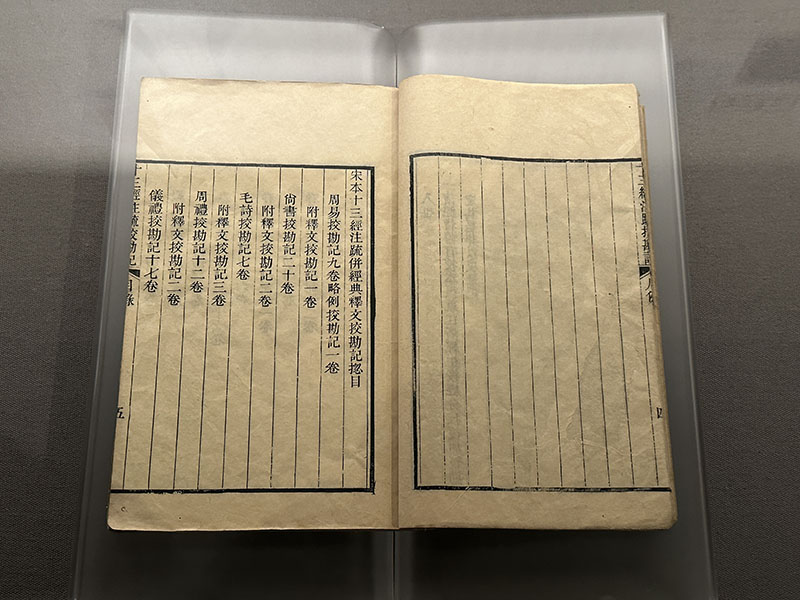 十三經注疏挍勘記 凡例
四
宋本十三經注疏併經典釋文挍勘記揔目
周易挍勘記九卷略例挍勘記一卷
附釋文挍勘記一卷
尚書挍勘記二十卷
附釋文挍勘記二卷
毛詩挍勘記七卷
附釋文挍勘記三卷
周禮挍勘記十二卷
附釋文挍勘記二卷
儀禮挍勘記十七卷
十三經注疏挍勘記 目錄
五